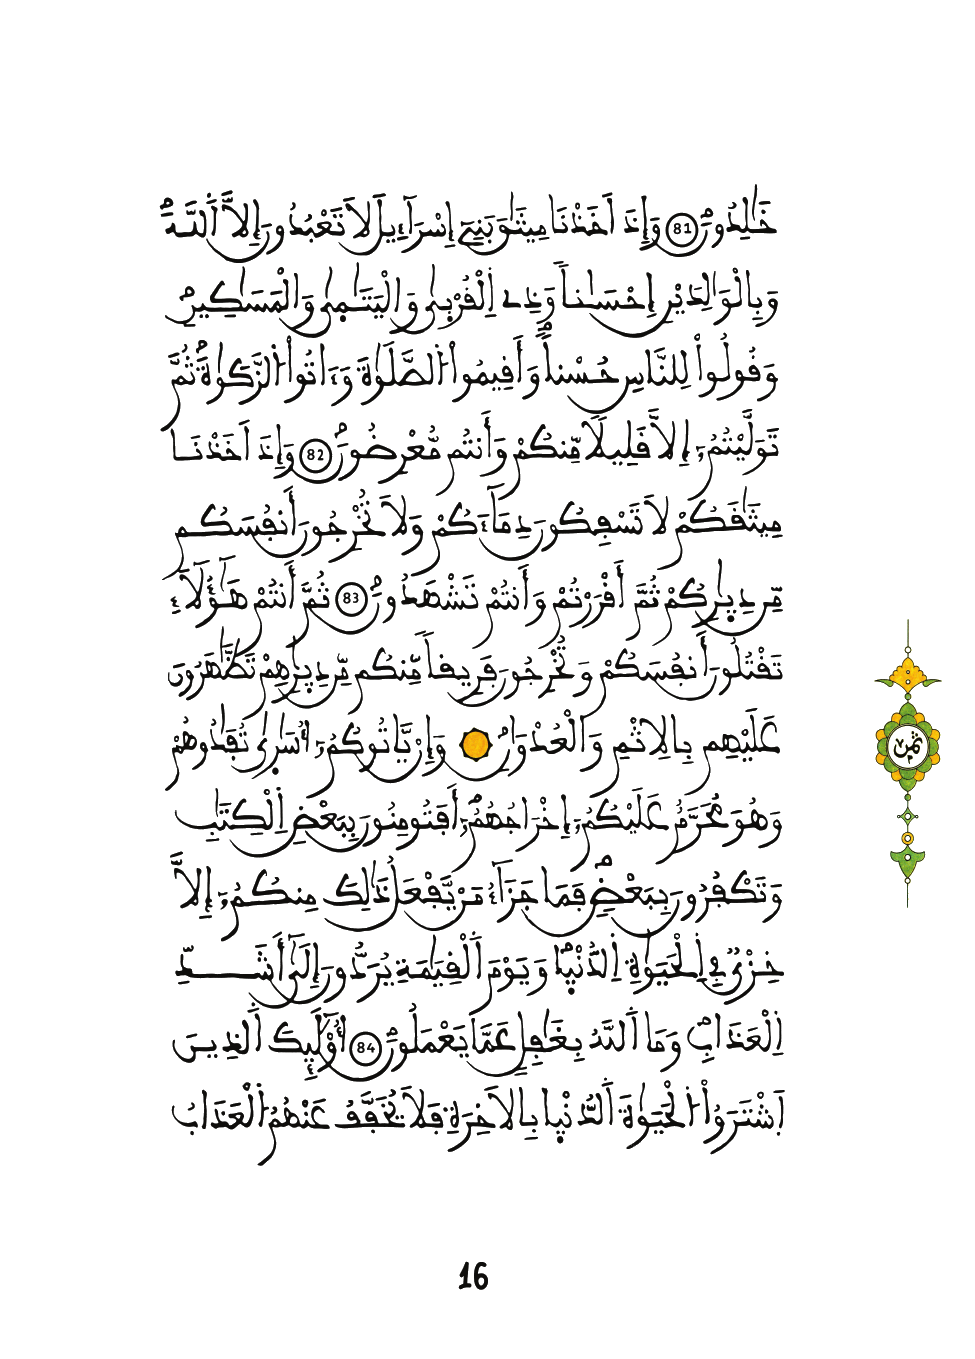 خَٰلِدُونَۖ 81 وَإِذَ اَخَذْنَا مِيثَٰقَ بَنِےٓ إِسْرَآءِيلَ لَا تَعْبُدُونَ إِلَّا اَللَّهَۖ
وَبِالْوَٰلِدَيْنِ إِحْسَٰناٗ وَذِے اِلْقُرْبٜيٰ وَالْيَتَٰمٜيٰ وَالْمَسَٰكِينِۖ
وَقُولُواْ لِلنَّاسِ حُسْناٗۖ وَأَقِيمُواْ اُلصَّلَوٰةَ وَءَاتُواْ اُلزَّكَوٰةَۖ ثُمَّ
تَوَلَّيْتُمُۥٓ إِلَّا قَلِيلاٗ مِّنكُمْ وَأَنتُم مُّعْرِضُونَۖ 82 وَإِذَ اَخَذْنَا
مِيثَٰقَكُمْ لَا تَسْفِكُونَ دِمَآءَكُمْ وَلَا تُخْرِجُونَ أَنفُسَكُم
مِّن دِيٰٜرِكُمْ ثُمَّ أَقْرَرْتُمْ وَأَنتُمْ تَشْهَدُونَۖ 83 ثُمَّ أَنتُمْ هَٰٓؤُلَآءِ
تَقْتُلُونَ أَنفُسَكُمْ وَتُخْرِجُونَ فَرِيقاٗ مِّنكُم مِّن دِيٰٜرِهِمْ تَظَّٰهَرُونَ
عَلَيْهِم بِالِاثْمِ وَالْعُدْوَٰنِۖ وَإِنْ يَّاتُوكُمُۥٓ أُسَٰرٜيٰ تُفَٰدُوهُمْ
وَهُوَ مُحَرَّمٌ عَلَيْكُمُۥٓ إِخْرَاجُهُمُۥٓۖ أَفَتُومِنُونَ بِبَعْضِ اِلْكِتَٰبِ
وَتَكْفُرُونَ بِبَعْضٖۖ فَمَا جَزَآءُ مَنْ يَّفْعَلُ ذَٰلِكَ مِنكُمُۥٓ إِلَّا
خِزْيٞ فِے اِلْحَيَوٰةِ اِلدُّنْيٜاۖ وَيَوْمَ اَلْقِيَٰمَةِ يُرَدُّونَ إِلَيٰٓ أَشَدِّ
اِلْعَذَابِۖ وَمَا اَللَّهُ بِغَٰفِلٍ عَمَّا يَعْمَلُونَۖ 84 أُوْلَٰٓئِكَ اَلذِينَ
اَشْتَرَوُاْ اُلْحَيَوٰةَ اَلدُّنْيٜا بِالَاخِرَةِ فَلَا يُخَفَّفُ عَنْهُمُ اُلْعَذَابُ
ثمن
16